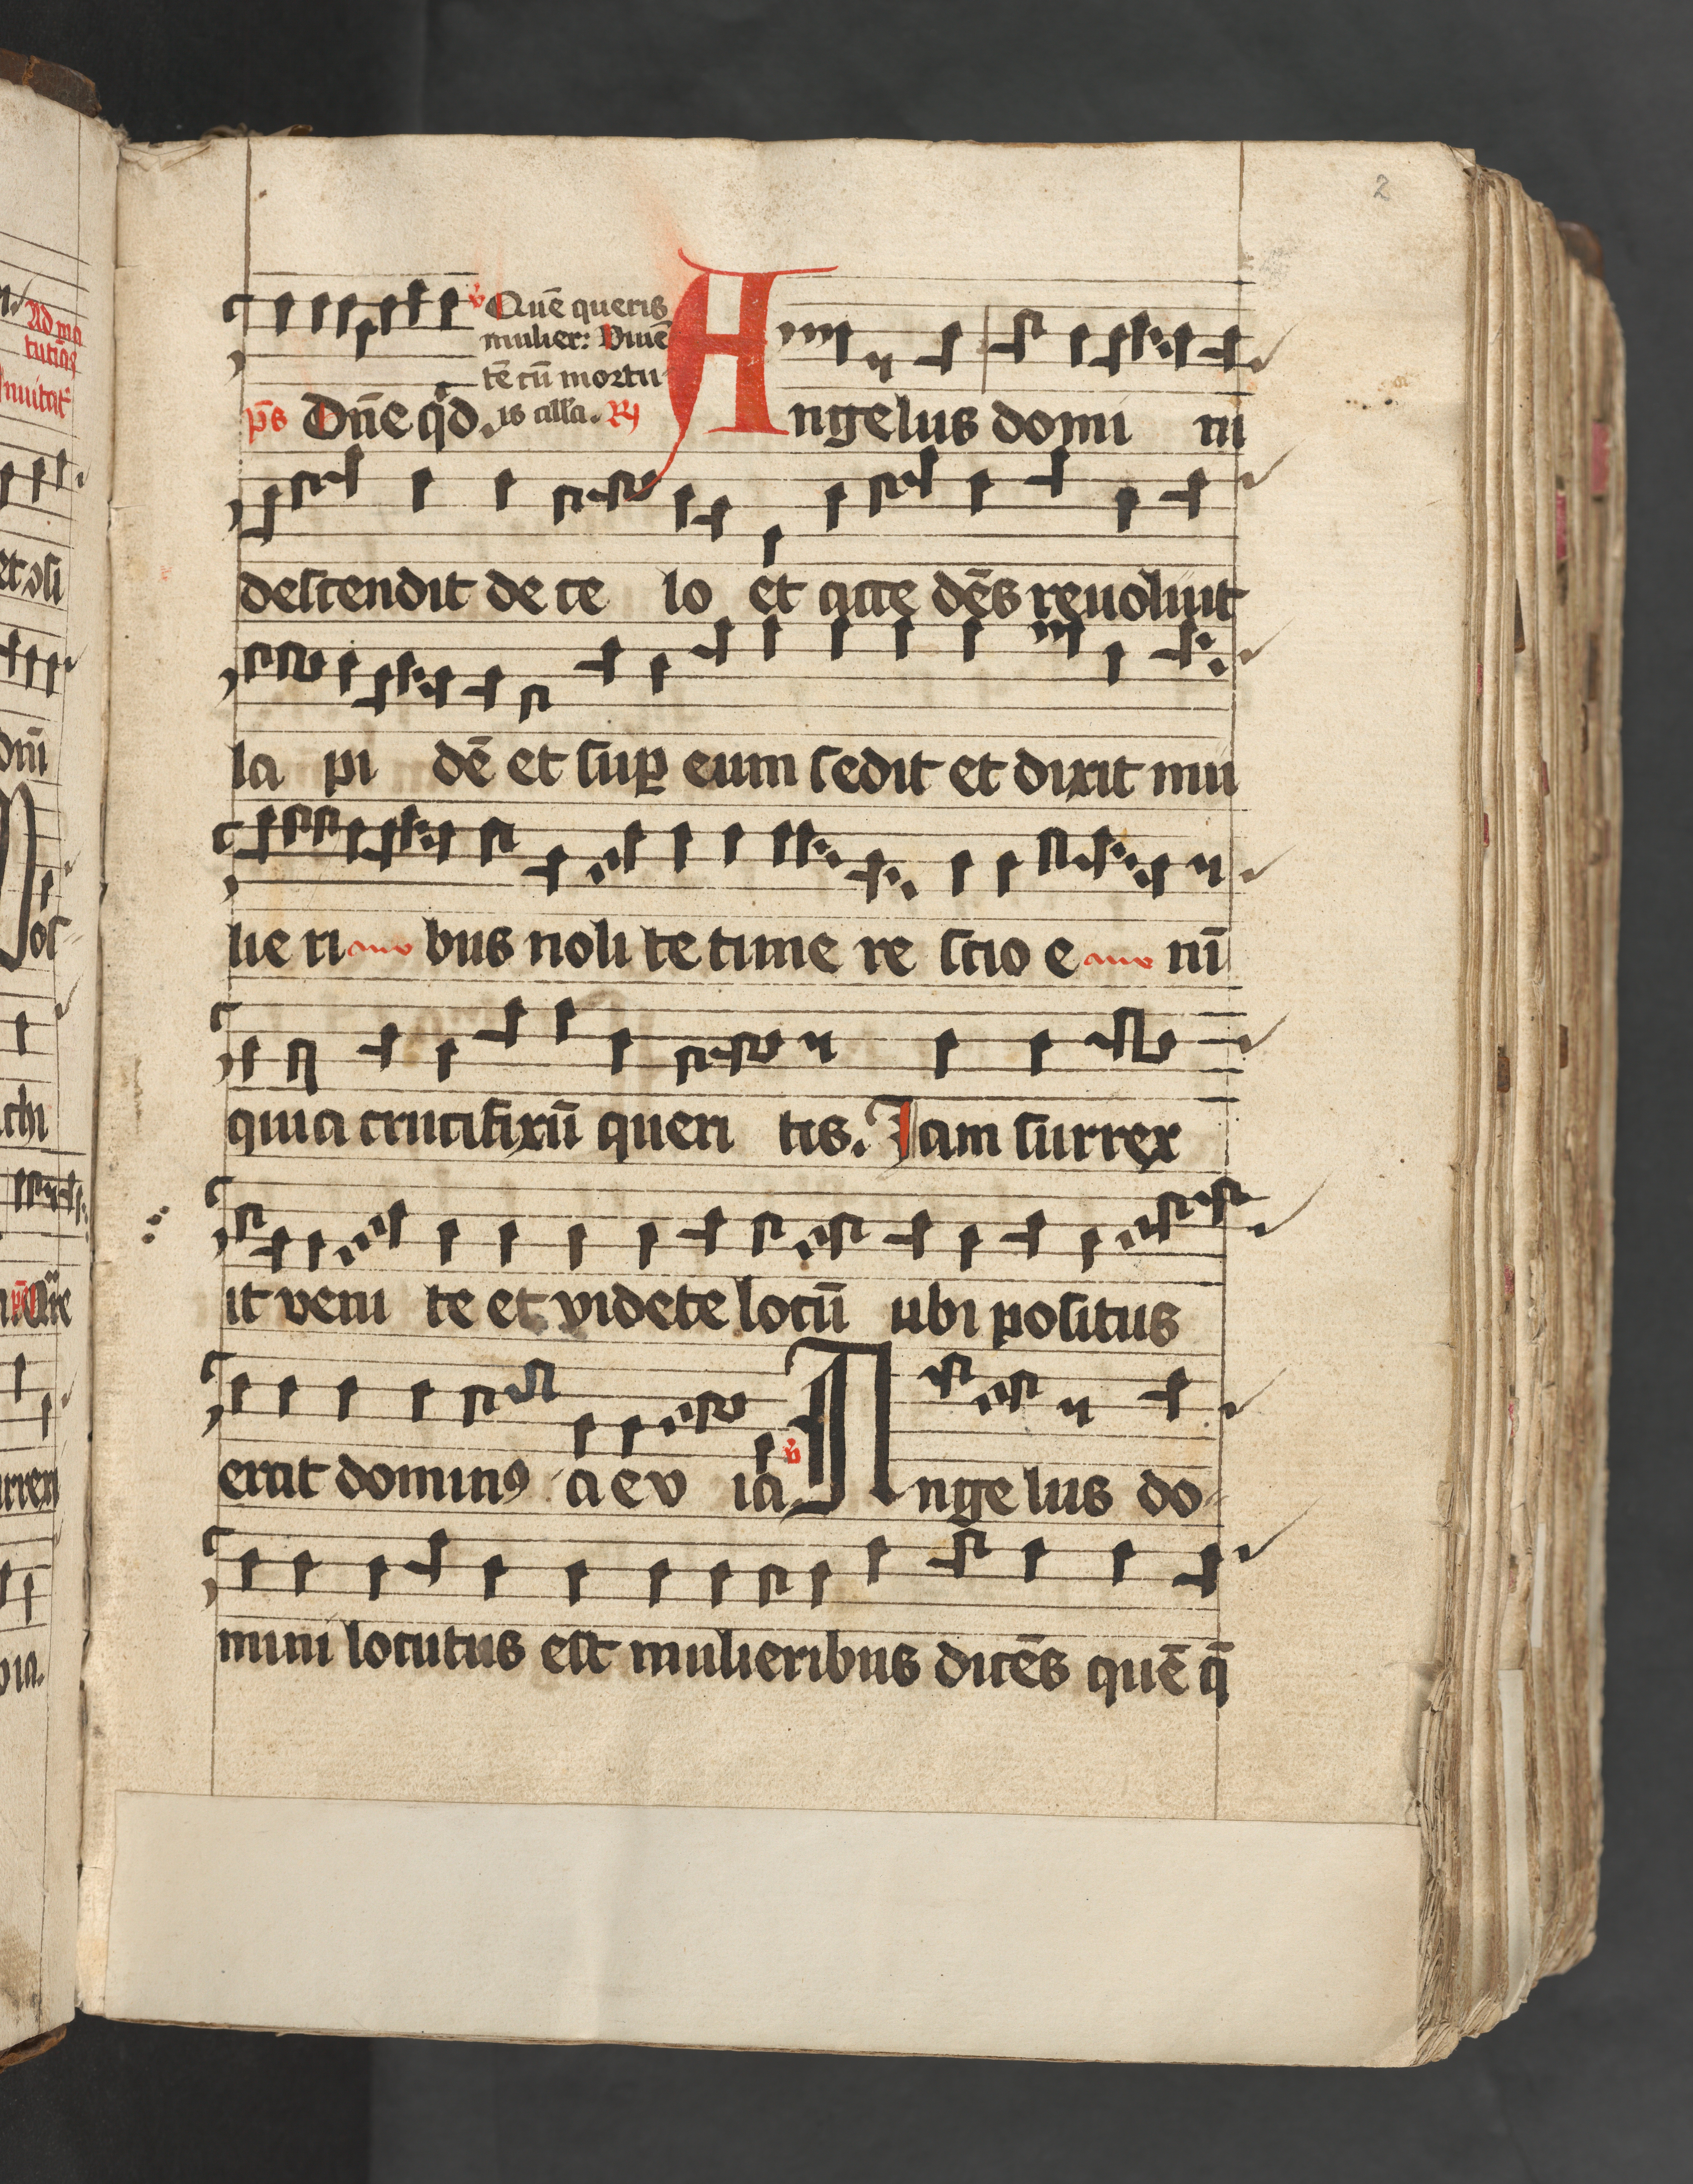 2
v Quē queris
mulier: Viuē
tē cū mortu
ps Dn̄e qd. is all'a. R Angelus domi ni
descendit de ce lo et acce dēs reuoluit
la pi dē et sup eum sedit et dixit mu
lie ri bus noli te time re scio e nī
quia crucifixū queri tis. Iam surrex
it veni te et videte locū ubi positus
erat dominꝰ a e v ia v Angelus do
mini locutus est mulieribus dicēs quē q̄
Ad ma
tutinas
Inuitat